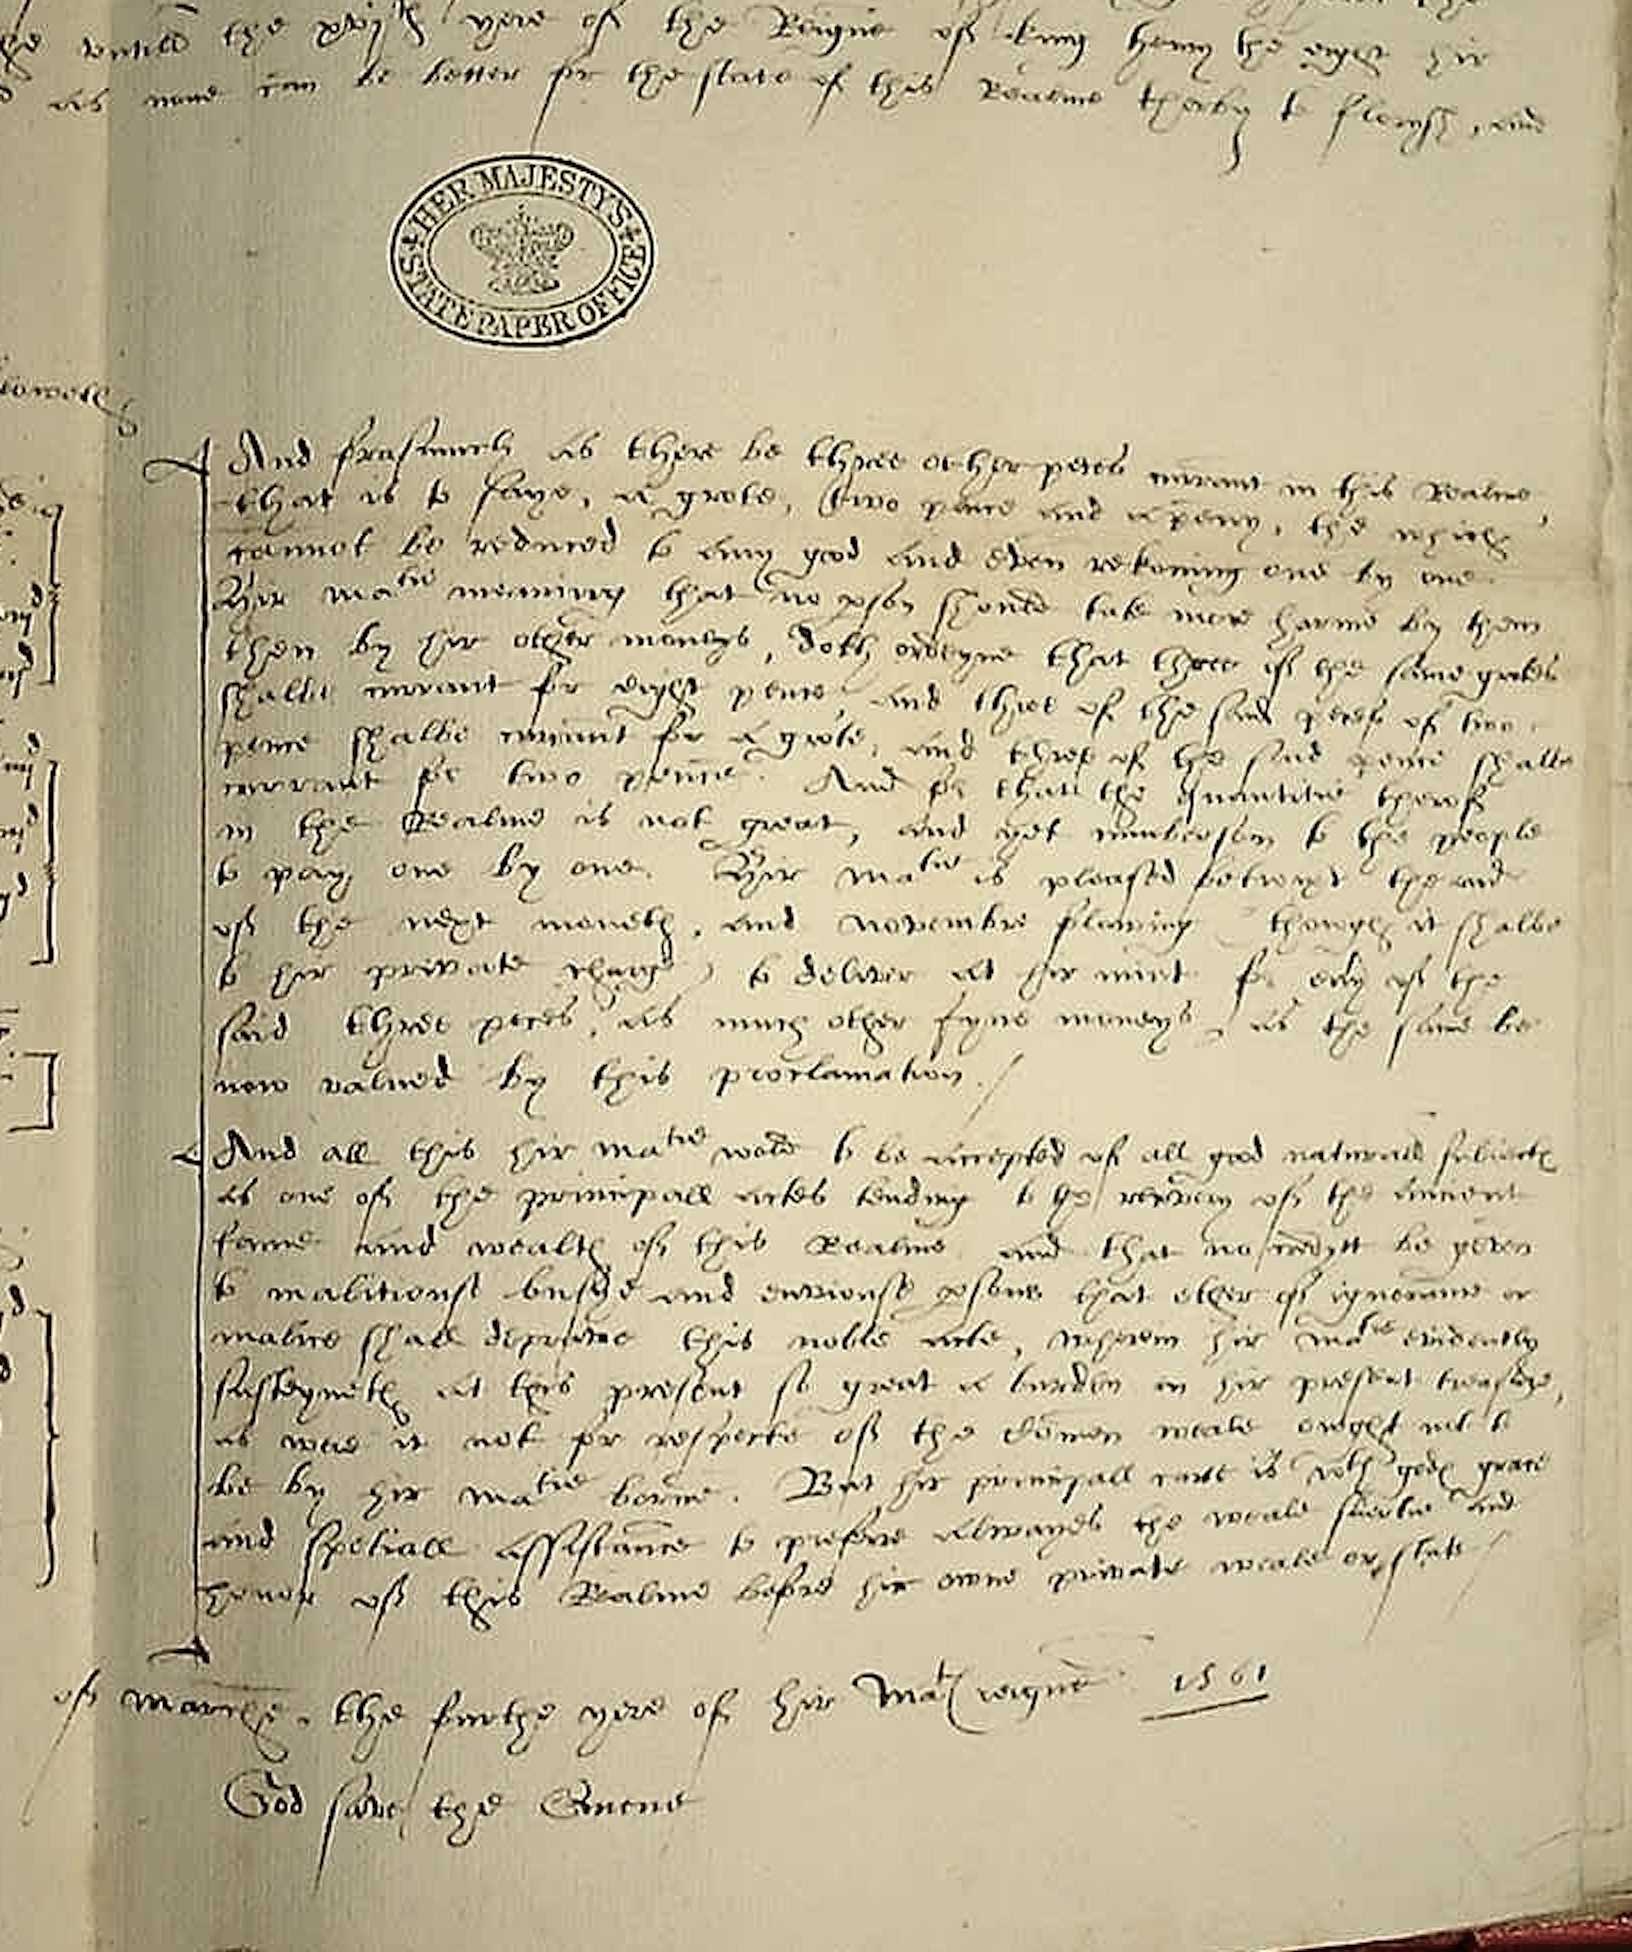 untill the xviijth yere of the Reigne of king henry the eight hir
as none can be better for the state of this Realme therby to florish, and
HER MAJESTY'S STATE PAPER OFFICE
And forasmuch as there be three other peces currant in this Realme,
that is to saye, a grote, two pence and a peny, the which
cannot be reduced to any good and even rekoning one by one
Hir matie meaning that no pson should take more harme by them
then by hir other moneys, doth ordeyne that three of the same grotes
shalbe currant for eight pence, and thre of the said peces of two
pence shalbe currant for a grote, and thre of the said pence shalbe
currant for two pence. And for that the quantitie therof
in the Realme is not great, and yet cumbersom to the people
to pay one by one. Hir matie is pleased betwixt the end
of the next moneth, and novembre folowing though it shalbe
to hir private charge, to deliver at hir mint for evy of the
said three peces, as much other fyne moneys, as the same be
now valued by this proclamation./
And all this hir matie wold to be accepted of all good naturall subiects
as one of the principall actes tending to the recovery of the ancient
fame and wealth of this Realme and that no credytt be geven
to malitiouse busye and enviouse psons that ether of ignorance or
malice shall deprave this noble acte, wherein hir matie evidently
susteyneth at this present so great a burden in hir present treasure,
as were it not for respecte of the comen weale ought not to
be by hir matie borne. But hir principall care is wth gods grace
and speciall assistance to preferre alwayes the weale suertie and
honor of this Realme before hir owne private weale or state/
of marche, the fourthe yere of hir Mats reigne 1561
God save the Quene